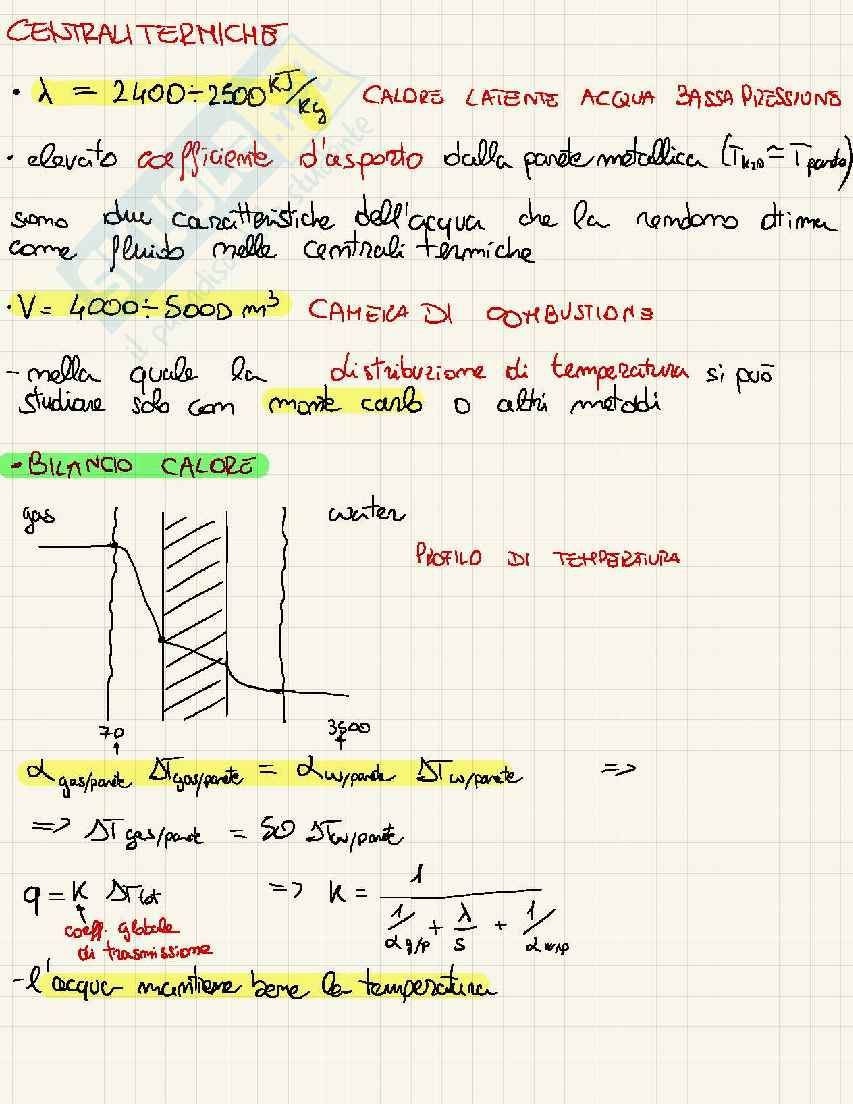 CENTRALI TERMICHE
• λ = 2400÷2500 KJ/Kg CALORE LATENTE ACQUA BASSA PRESSIONE
• elevato coefficiente d'asporto dalla parete metallica (T_H2O ≃ T_parete)
sono due caratteristiche dell'acqua che la rendono ottima
come fluido nelle centrali termiche
• V = 4000÷5000 m³ CAMERA DI COMBUSTIONE
- nella quale la distribuzione di temperatura si può
studiare solo con monte carlo o altri metodi
• BILANCIO CALORE
gas water
PROFILO DI TEMPERATURA
70 3500
α gas/parete ΔT gas/parete = α w/parete ΔT w/parete =>
=> ΔT gas/paret = 50 ΔT w/parete
q = K ΔT tot => K = 1 / (1/α g/p + λ/s + 1/α w/p)
coeff. globale
di trasmissione
- l'acqua mantiene bene la temperatura